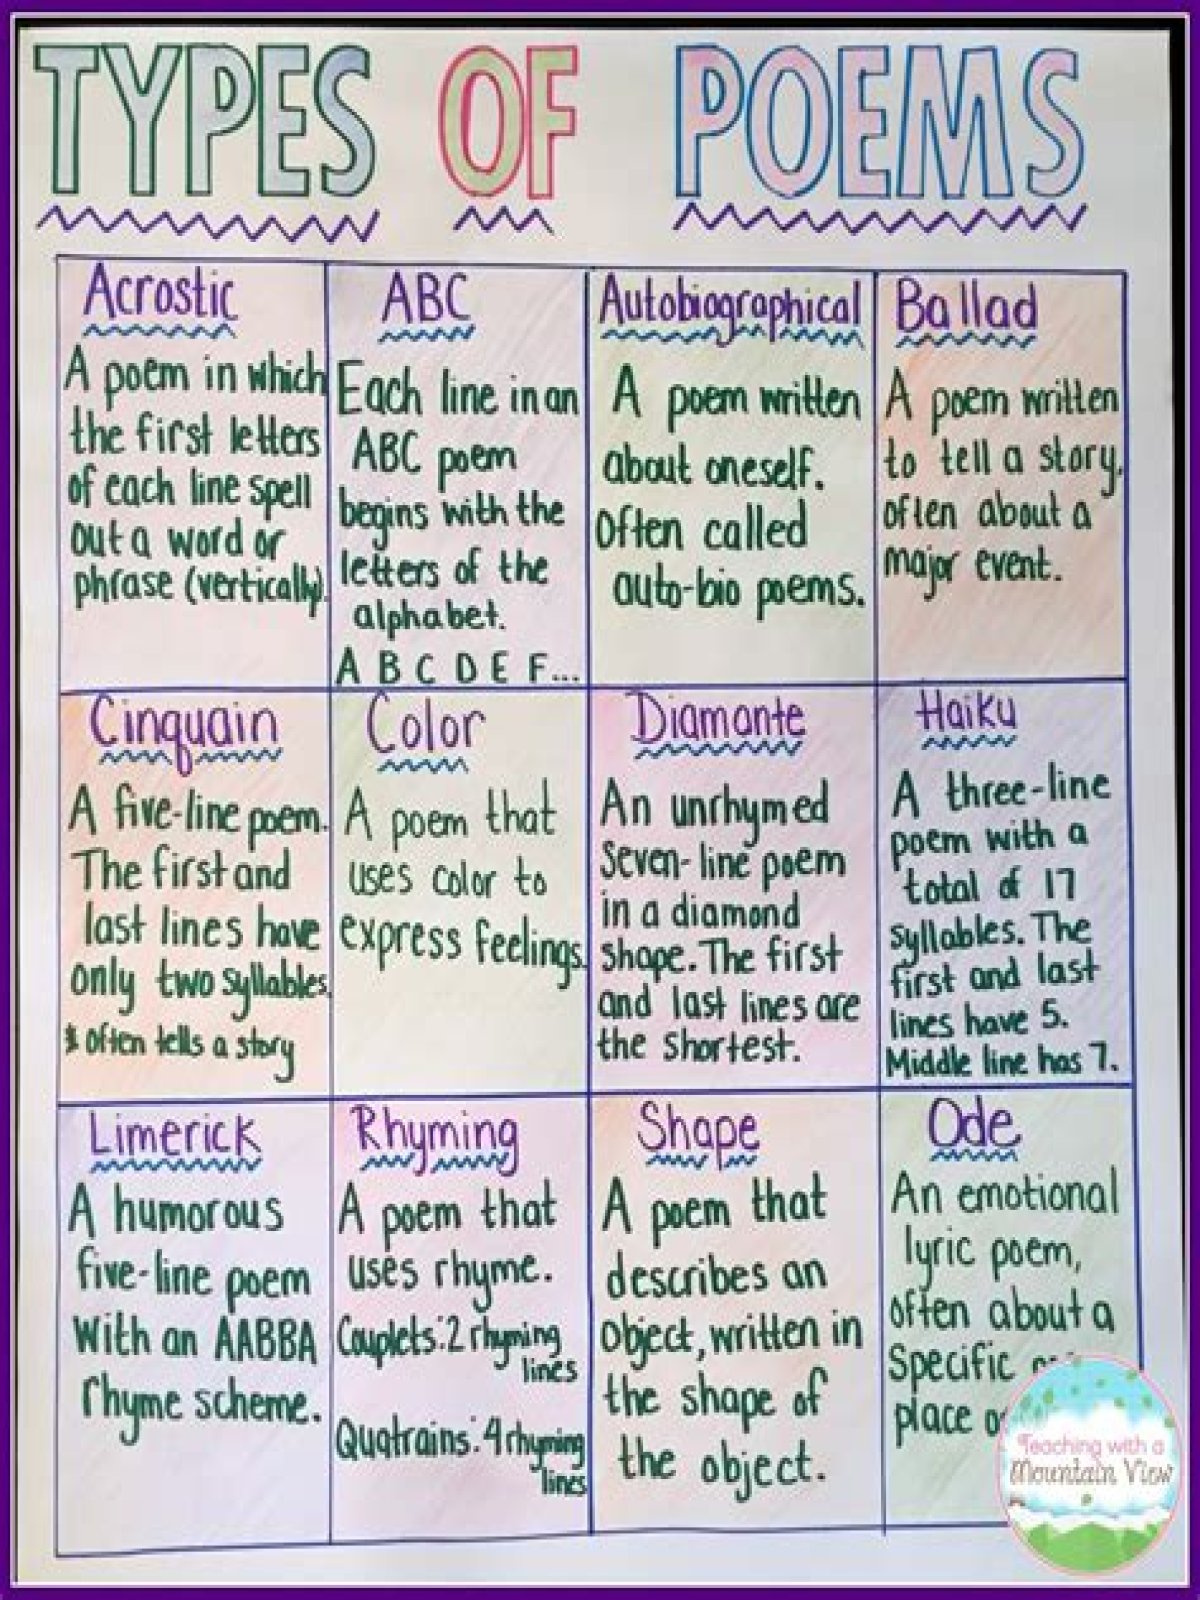 TYPES OF POEMS
Acrostic
A poem in which
the first letters
of each line spell
out a word or
phrase (vertically).
ABC
Each line in an
ABC poem
begins with the
letters of the
alphabet.
A B C D E F...
Autobiographical
A poem written
about oneself.
Often called
auto-bio poems.
Ballad
A poem written
to tell a story,
often about a
major event.
Cinquain
A five-line poem.
The first and
last lines have
only two syllables.
& often tells a story
Color
A poem that
uses color to
express feelings.
Diamante
An unrhymed
Seven-line poem
in a diamond
shape. The first
and last lines are
the shortest.
Haiku
A three-line
poem with a
total of 17
syllables. The
first and last
lines have 5.
Middle line has 7.
Limerick
A humorous
five-line poem
with an AABBA
rhyme scheme.
Rhyming
A poem that
uses rhyme.
Couplets: 2 rhyming
lines
Quatrains: 4 rhyming
lines
Shape
A poem that
describes an
object, written in
the shape of
the object.
Ode
An emotional
lyric poem,
often about a
Specific
place
Teaching with a
Mountain View